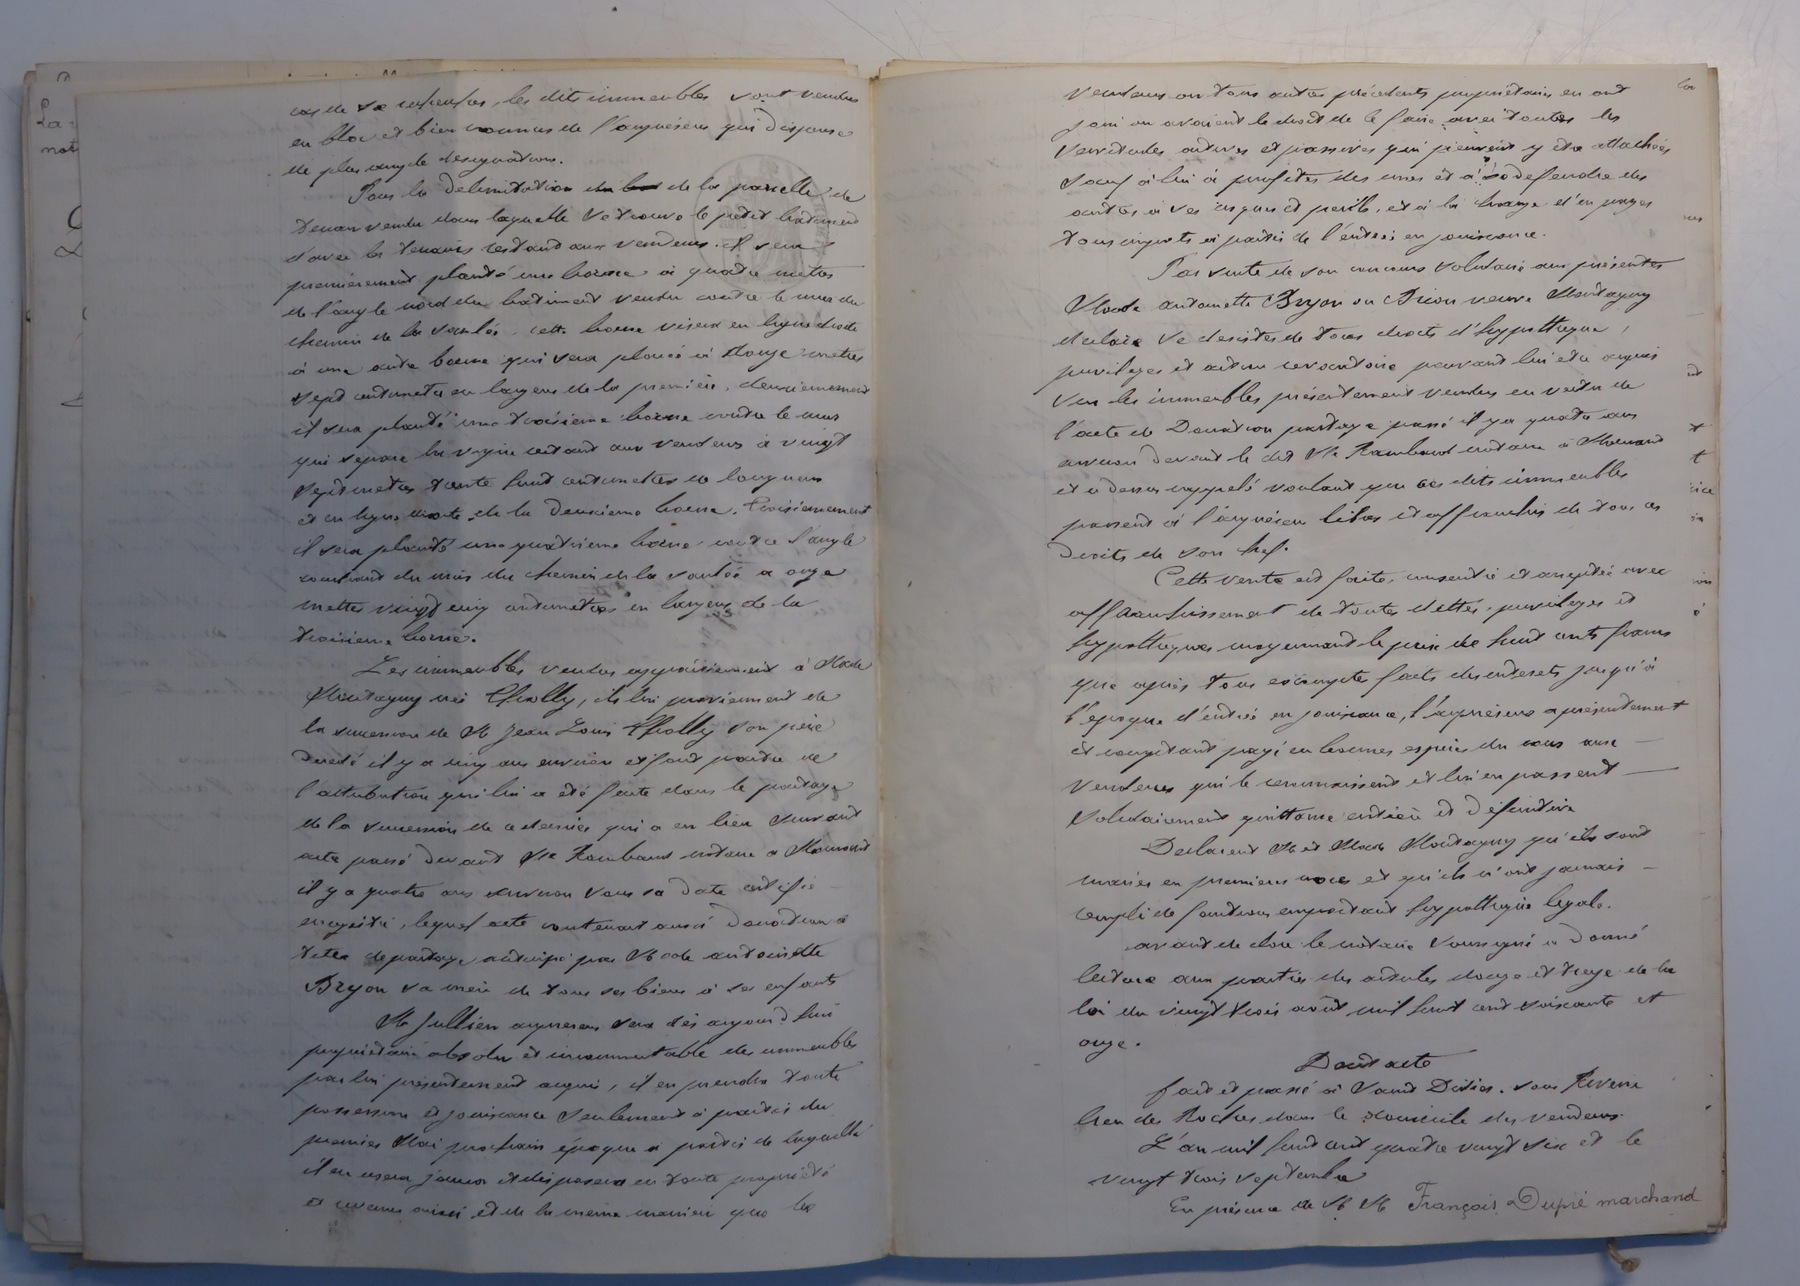 cas de recherches, les dits immeubles sont vendus
en bloc et bien connus de l'acquéreur qui dispense
de plus ample designation.
Pour la delimitation de la parcelle de
terrain vendu dans laquelle se trouve le petit batiment
d'avec les terrains restant aux vendeurs. il sera
premièrement planté une borne à quatre mètres
de l'angle nord du batiment vendu contre le mur du
chemin de la cette borne visera en ligne droite
à une autre borne qui sera placée à douze mètres
sept centimetres en largeur de la première, deuxiemement
il sera planté une troisième borne contre le mur
qui separe la vigne restant aux vendeurs à vingt
sept metres trente huit centimetres de longueur
et en ligne droite de la deuxieme borne. Troisiemement
il sera planté une quatrieme borne contre l'angle
couchant du mur du chemin de la a onze
metres vingt cinq centimetres en largeur de la
troisieme borne.
Les immeubles vendus appartiennent à Made
Montagny née Cholly, ils lui proviennent de
la succession de Mr Jean Louis Cholly son père
decedé il y a cinq ans environ et font partie de
l'attribution qui lui a été faite dans le partage
de la succession de ce dernier qui a eu lieu suivant
acte passé devant Me Rambaud notaire a Mornant
il y a quatre ans environ sous sa date certifié
enregistré, lequel acte contenant aussi donation à
titre de partage anticipé par Made antoinette
Bryon sa mère de tous ses biens à ses enfants
Mr Jullien acquereur sera dès aujourd'hui
propriétaire absolu et incommutable des immeubles
par lui présentement acquis, il en prendra toute
possession et jouissance seulement à partir du
premier Mai prochain époque à partir de laquelle
il en usera jouira et disposera en toute propriété
et comme ainsi et de la meme manière que les
vendeurs ou tous autres précédents propriétaires en ont
joui ou avaient le droit de le faire avec toutes les
servitudes actives et passives qui peuvent y etre attachées
sauf à lui à profiter des unes et à se defendre des
autres à ses risques et perils, et à la charge d'en payer
tous impots à partir de l'entrée en jouissance.
Par suite de son concours volontaire aux présentes
Made antoinette Bryon ou Brion veuve Montagny
declare se desister de tous droits d'hypotheque,
privileges et action revocatoire pouvant lui etre acquis
sur les immeubles présentement vendus en vertu de
l'acte de Donation partage passé il y a quatre ans
environ devant le dit Me Rambaud notaire à Mornant
et ci dessus rappelé voulant que ces dits immeubles
passent à l'acquéreur libres et affranchis de tous ces
droits de son chef.
Cette vente est faite, consentie et acceptée avec
affranchissement de toutes dettes, privileges et
hypotheques moyennant le prix de huit cents francs
que après tous escompte faits des interets jusqu'à
l'epoque d'entrée en jouissance, l'acquéreur a présentement
et comptant payé en bonnes espèces du cours aux
vendeurs qui le reconnaissent et lui en passent
volontairement quittance entière et définitive
Declarent Mr et Made Montagny qu'ils sont
mariés en premieres noces et qu'ils n'ont jamais
rempli de fonctions emportant hypotheque legale.
avant de clore le notaire soussigné a donné
lecture aux parties des articles douze et treize de la
loi du vingt trois août mil huit cent soixante et
onze.
Dont acte
fait et passé à Saint Didier. sous Riverie
lieu des Roches dans le domicile des vendeurs.
L'an mil huit cent quatre vingt six et le
vingt trois septembre
En présence de M M François Dupré marchand